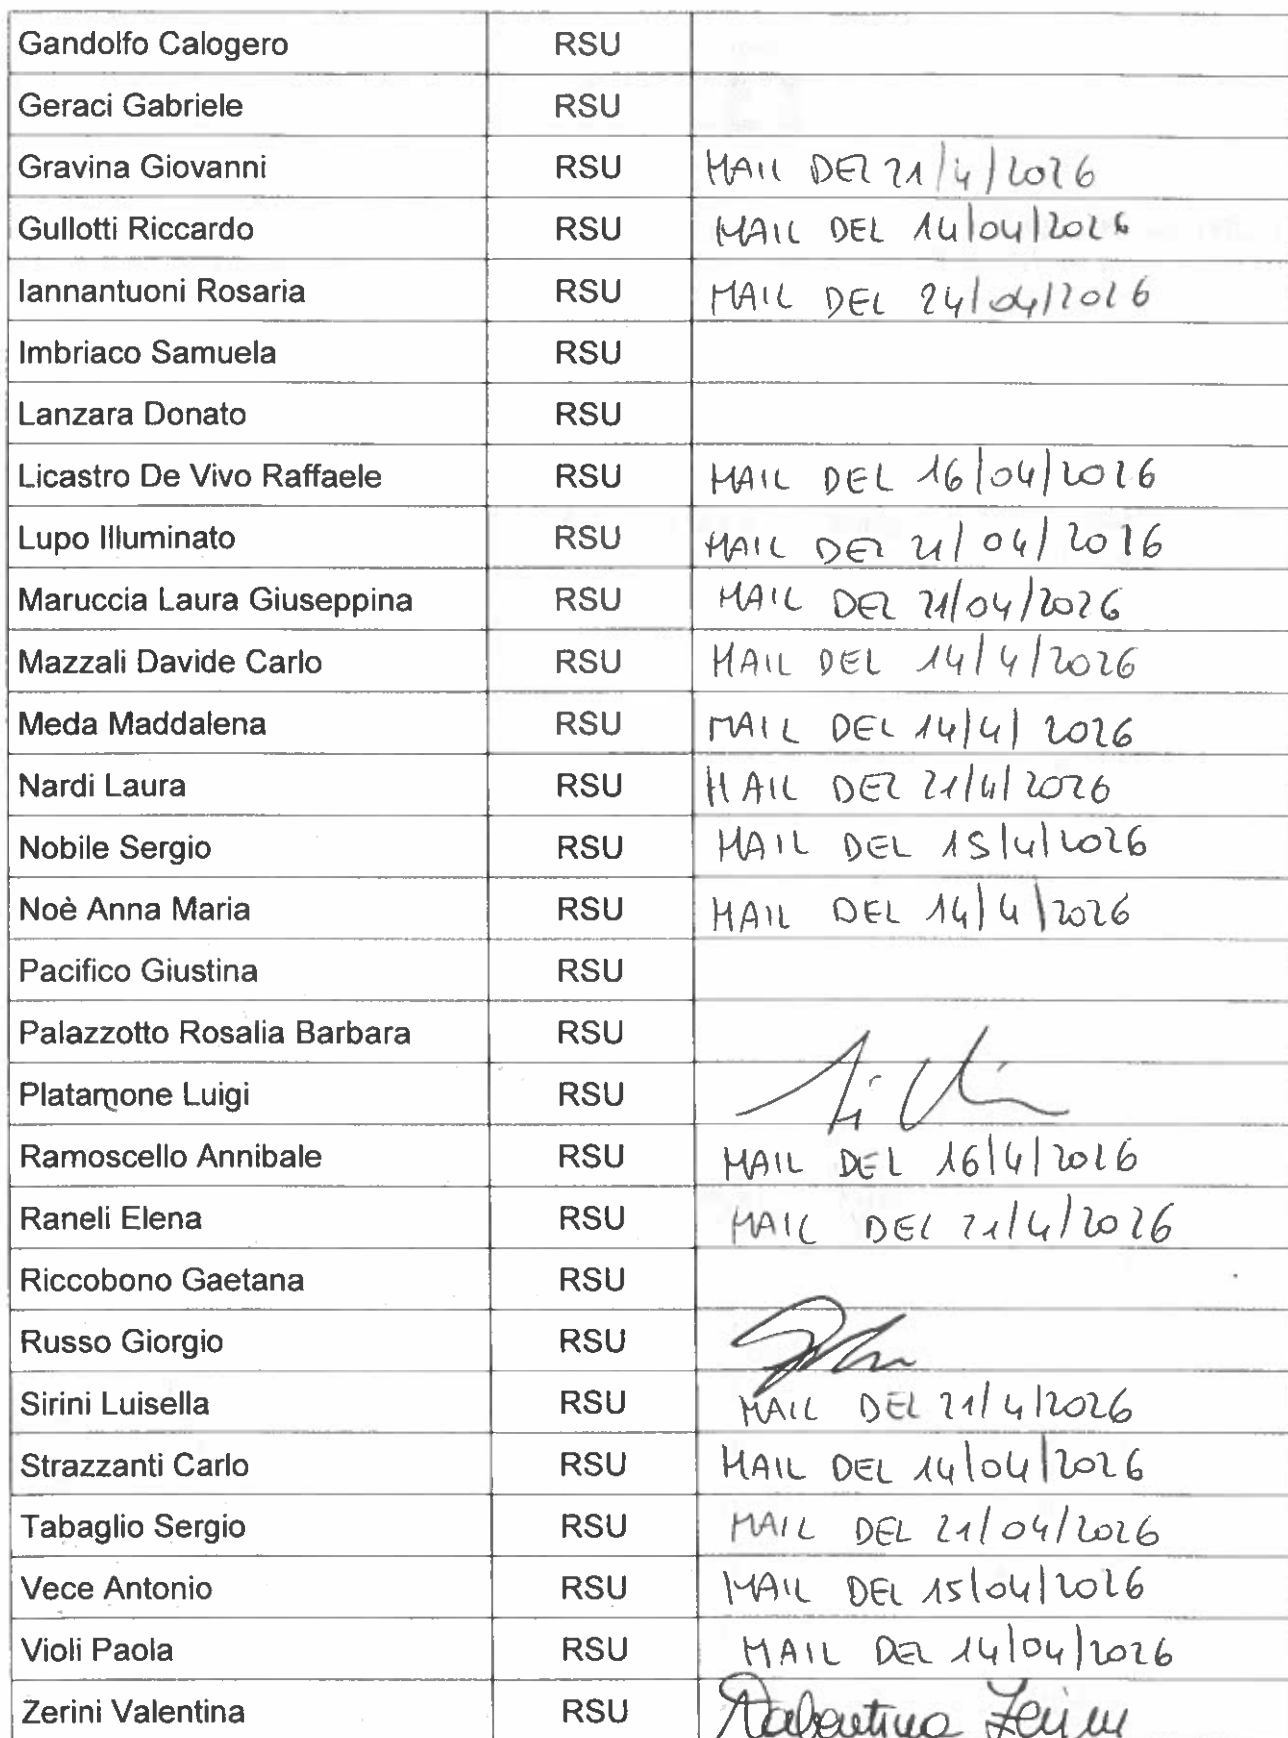 Gandolfo Calogero RSU
Geraci Gabriele RSU
Gravina Giovanni RSU MAIL DEL 21/4/2026
Gullotti Riccardo RSU MAIL DEL 14/04/2026
Iannantuoni Rosaria RSU MAIL DEL 24/04/2026
Imbriaco Samuela RSU
Lanzara Donato RSU
Licastro De Vivo Raffaele RSU MAIL DEL 16/04/2026
Lupo Illuminato RSU MAIL DEL 21/04/2026
Maruccia Laura Giuseppina RSU MAIL DEL 21/04/2026
Mazzali Davide Carlo RSU MAIL DEL 14/4/2026
Meda Maddalena RSU MAIL DEL 14/4/2026
Nardi Laura RSU MAIL DEL 21/4/2026
Nobile Sergio RSU MAIL DEL 15/4/2026
Noè Anna Maria RSU MAIL DEL 14/4/2026
Pacifico Giustina RSU
Palazzotto Rosalia Barbara RSU
Platamone Luigi RSU
Ramoscello Annibale RSU MAIL DEL 16/4/2026
Raneli Elena RSU MAIL DEL 21/4/2026
Riccobono Gaetana RSU
Russo Giorgio RSU
Sirini Luisella RSU MAIL DEL 21/4/2026
Strazzanti Carlo RSU MAIL DEL 14/04/2026
Tabaglio Sergio RSU MAIL DEL 21/04/2026
Vece Antonio RSU MAIL DEL 15/04/2026
Violi Paola RSU MAIL DEL 14/04/2026
Zerini Valentina RSU Valentina Zerini